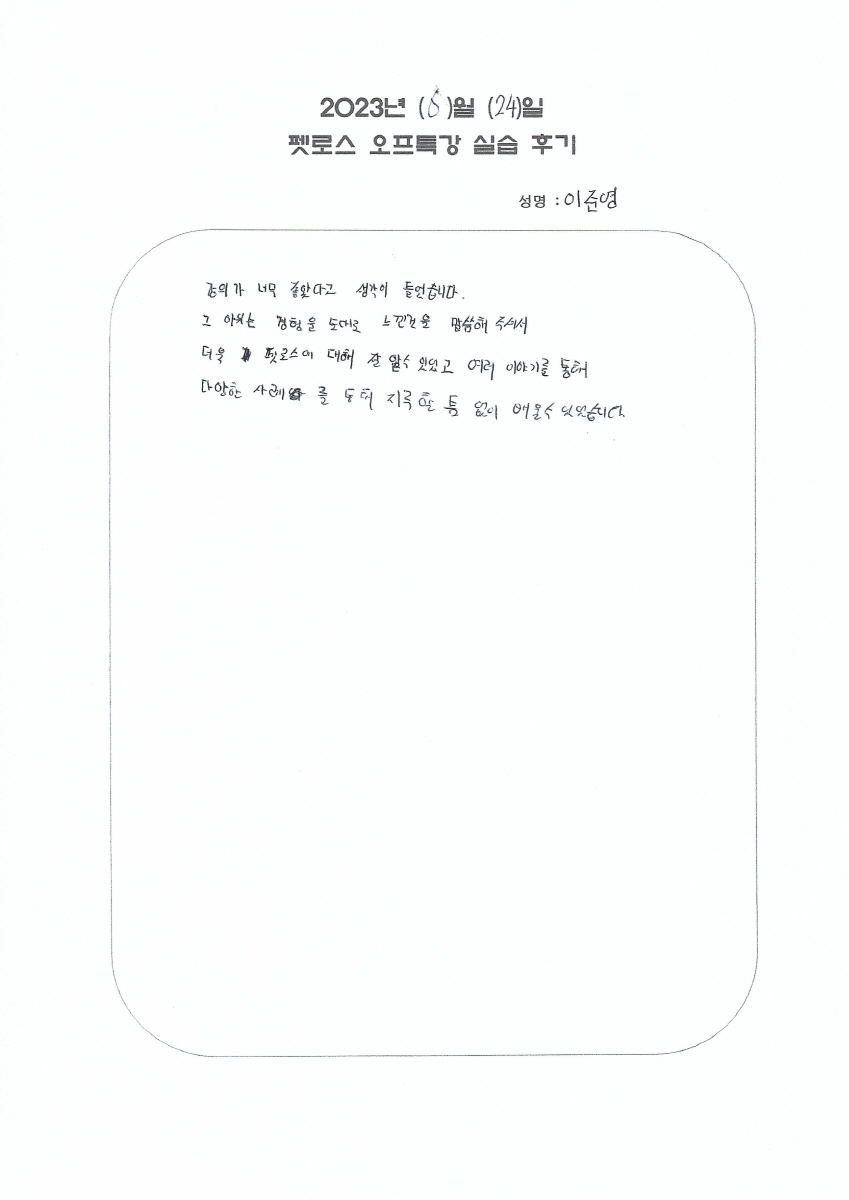 2023년 (8)월 (24)일
펫로스 오프특강 실습 후기
성명 : 이준영
강의가 너무 좋았다고 생각이 들었습니다.
그 경험을 토대로 느낀것을 말씀해 주셔서
더욱 펫로스에 대해 잘 알수 있었고 여러 이야기를 통해
다양한 사례를 통해 지루할 틈 없이 배울수 있었습니다.